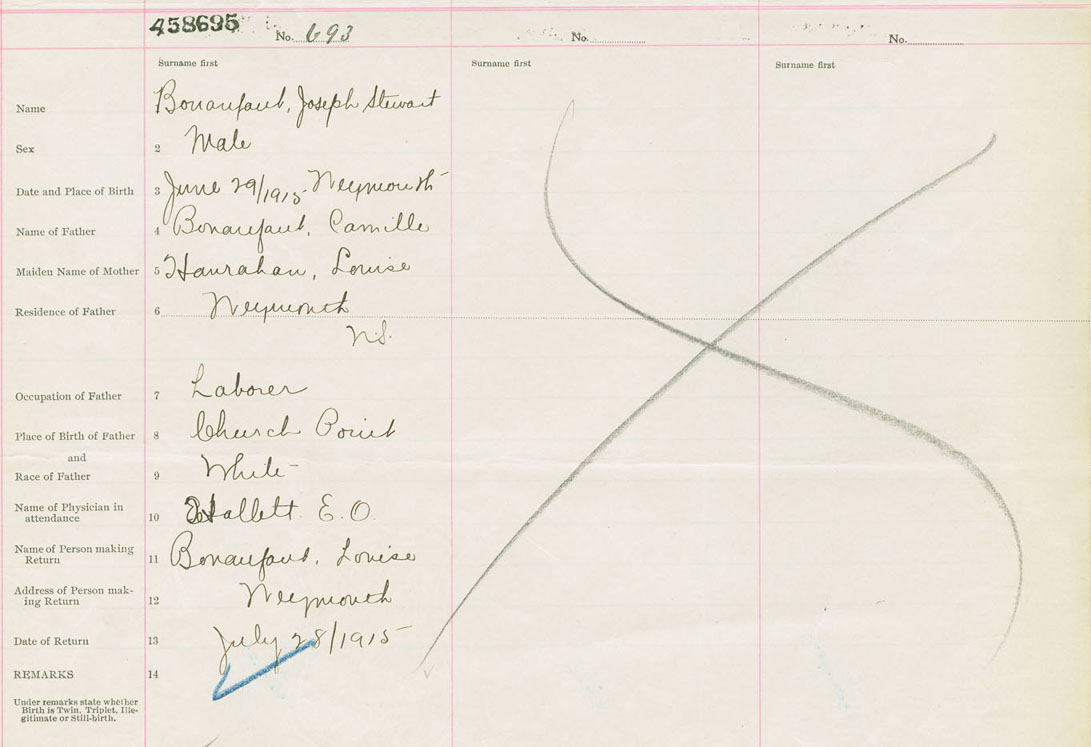 458695
No. 693 No. No.
Surname first Surname first Surname first
Name Bonanfant, Joseph Stewart
Sex 2 Male
Date and Place of Birth 3 June 29/1915 Weymouth
Name of Father 4 Bonanfant, Camille
Maiden Name of Mother 5 Hanrahan, Louise
Residence of Father 6 Weymouth
N.S.
Occupation of Father 7 Laborer
Place of Birth of Father 8 Church Point
and
Race of Father 9 White
Name of Physician in
attendance 10 Hallett. E. O.
Name of Person making
Return 11 Bonanfant, Louise
Address of Person mak-
ing Return 12 Weymouth
Date of Return 13 July 28/1915
REMARKS 14
Under remarks state whether
Birth is Twin, Triplet, Ille-
gitimate or Still-birth.